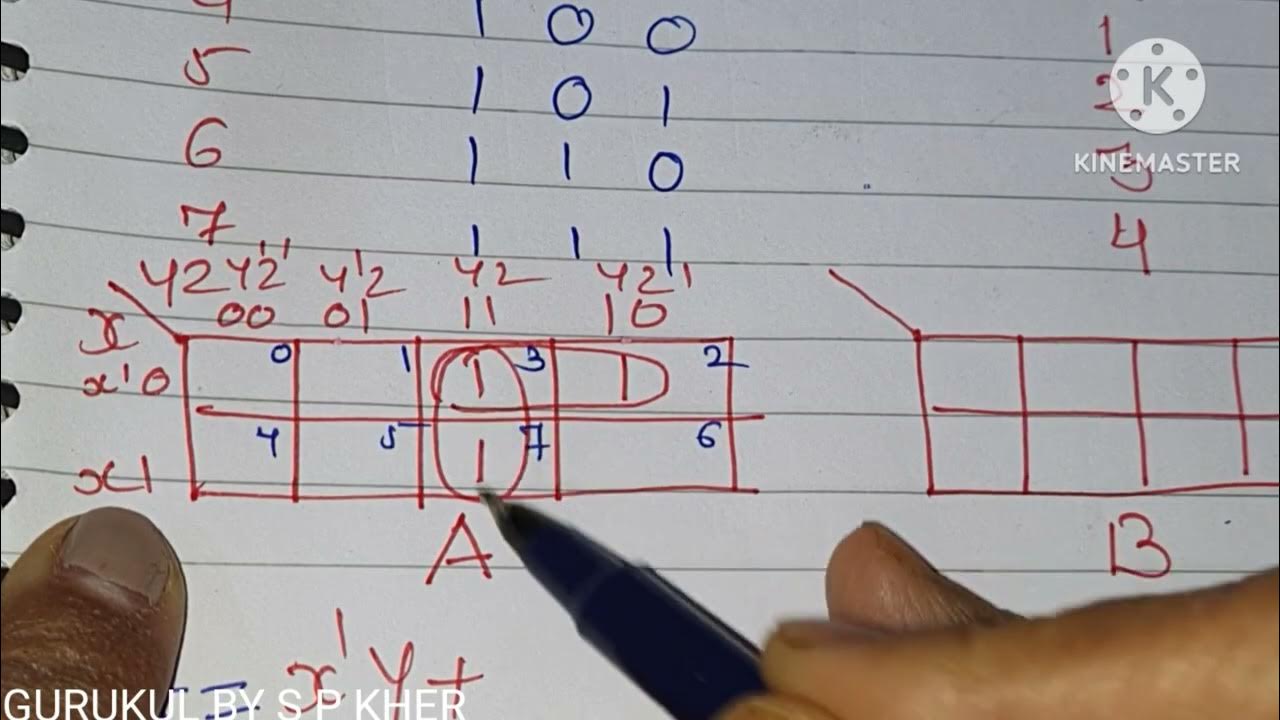 4 1 0 0 1
5 1 0 1 2
6 1 1 0 3
KINEMASTER
7 1 1 1 4
yz y'z' y'z yz yz'
x 00 01 11 10
x'0 0 1 1 3 1 2
x1 4 5 1 7 6
A B
= x'y +
GURUKUL BY S P KHER